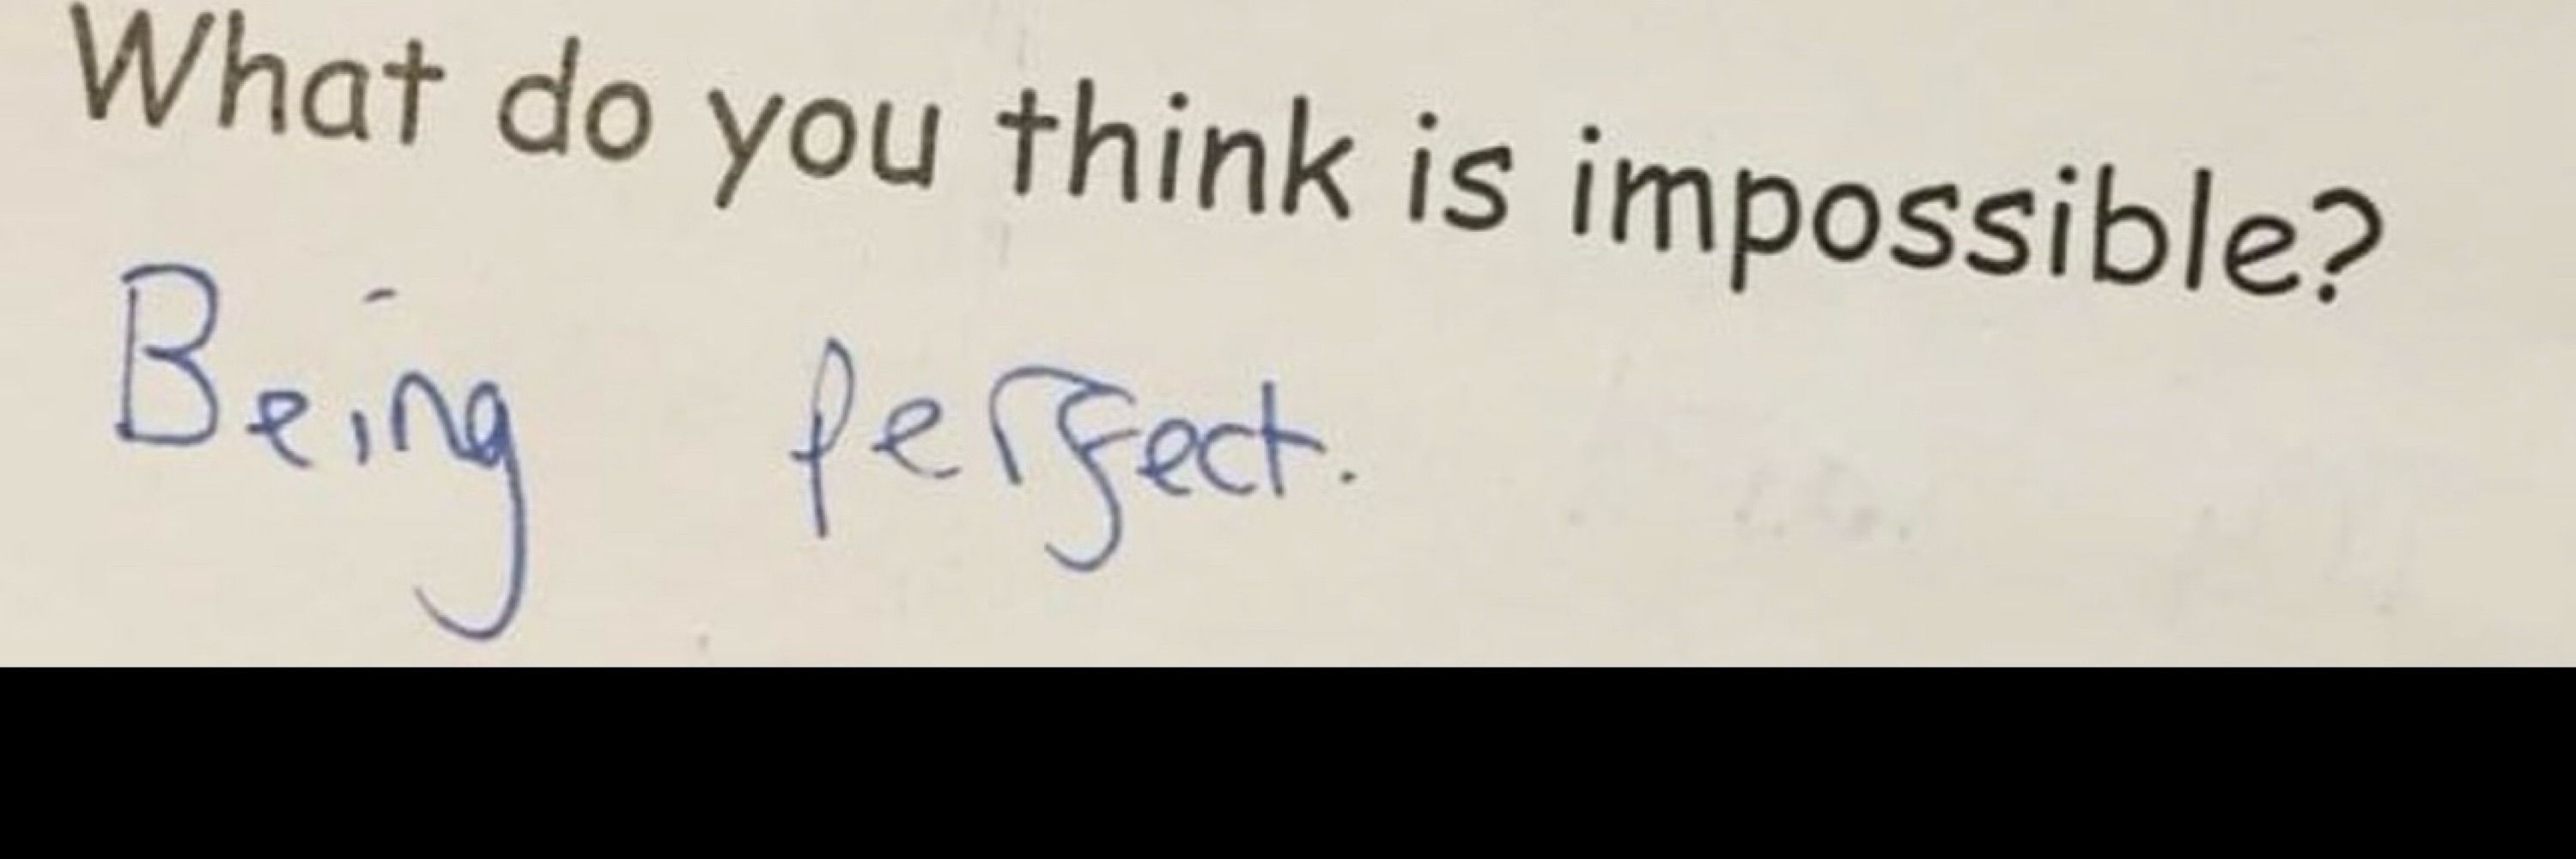 What do you think is impossible?
Being perfect.